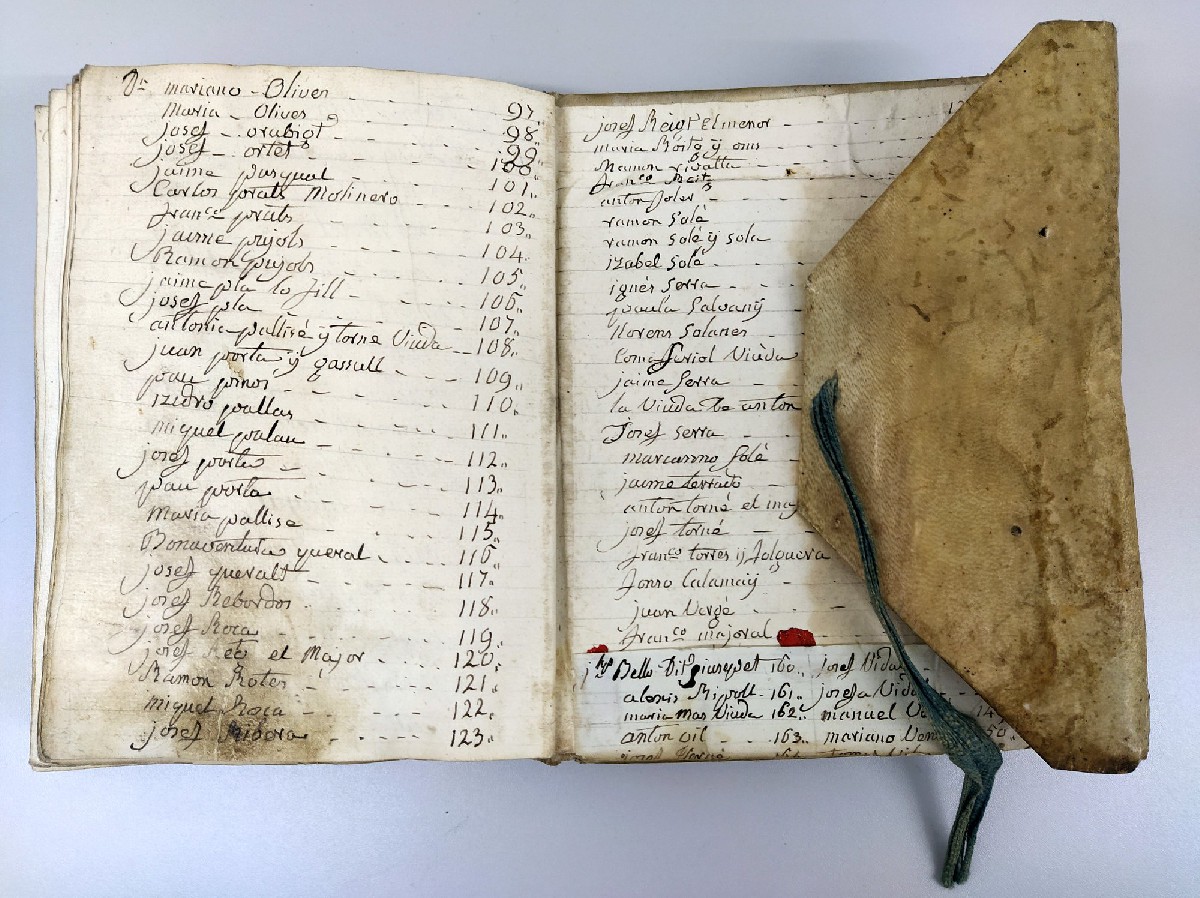 Dn mariano - Oliver
Maria - Olives - - - 97.
Josef - orabigt - - - 98.
Josef - ortet - - - 99.
jaime pasqual - - - 100.
Carlos prats Molinero - - - 101.
franco prats - - - 102.
jaime pujols - - - 103.
Ramon pujols - - - 104.
jaime pla lo fill - - - 105.
josef pla - - - 106.
antonia pallisé ÿ torné Viuda - - 107.
juan porta ÿ gassull - - - 108.
pau pinos - - - 109.
izidro pallas - - - 110.
miquel palau - - - 111.
josef porta - - - 112.
pau porta - - - 113.
maria pallise - - - 114.
Bonaventura queral - - - 115.
josef queralt - - - 116.
josef Rebordos - - - 117.
josef Roca - - - 118.
josef el Major - - - 119.
Ramon Roter - - - 120.
miquel Roca - - - 121.
josef Ribera - - - 122.
123.
josef Reigt el menor - - -
maria ÿ oms
Ramon ribalta
franco
anton soler -
ramon Solé
ramon Solé ÿ sola
izabel Solé
ignés Serra
paula Salvanÿ
llorens Solanes
Viuda
jaime Serra
la Viuda de anton
Josef serra
marianno Solé
jaime terrado
anton torné el ma
josef torné
franco torres ÿ folguera
Calamaÿ
juan Vergé
franco majoral
Bello 160. josef Vidal
alexis Ripoll - 161. josefa Vidal
maria mas Viuda 162. manuel
anton gil - - 163. mariano